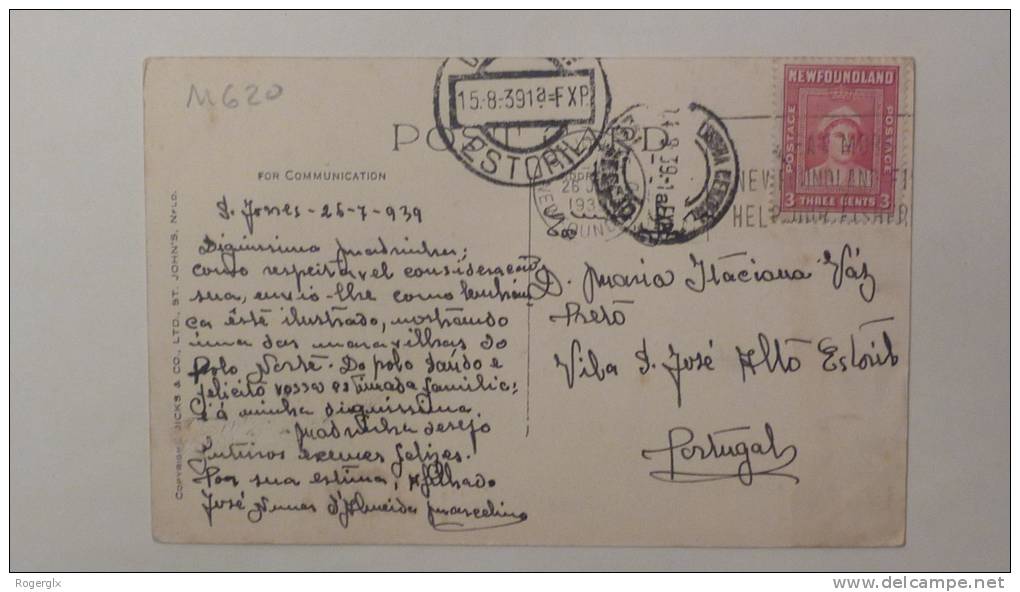 M620
15.-8.-391ª=EXP.
ESTORIL
NEWFOUNDLAND
POSTAGE
POSTAGE
3 THREE CENTS 3
POST CARD
FOR COMMUNICATION
HELP
COPYRIGHT, DICKS & CO., LTD., ST. JOHN'S, NFLD.
S. Jonnes - 25-7-939
Digníssima Madrinha;
como respeitavel consideração
sua, envio-lhe como lembran
ça êste ilustrado, mostrando
uma das maravilhas do
Polo Norte. Do polo saúdo e
felicito vossa estimada familia;
á minha digníssima.
Madrinha desejo
felizes.
Por sua estima, Afilhado
José Nunes d'Almeida Marcelino
D. Maria Itaciana Váz
Preto
Vila S. José Alto Estoril
Portugal
Rogerglx
delcampe.net